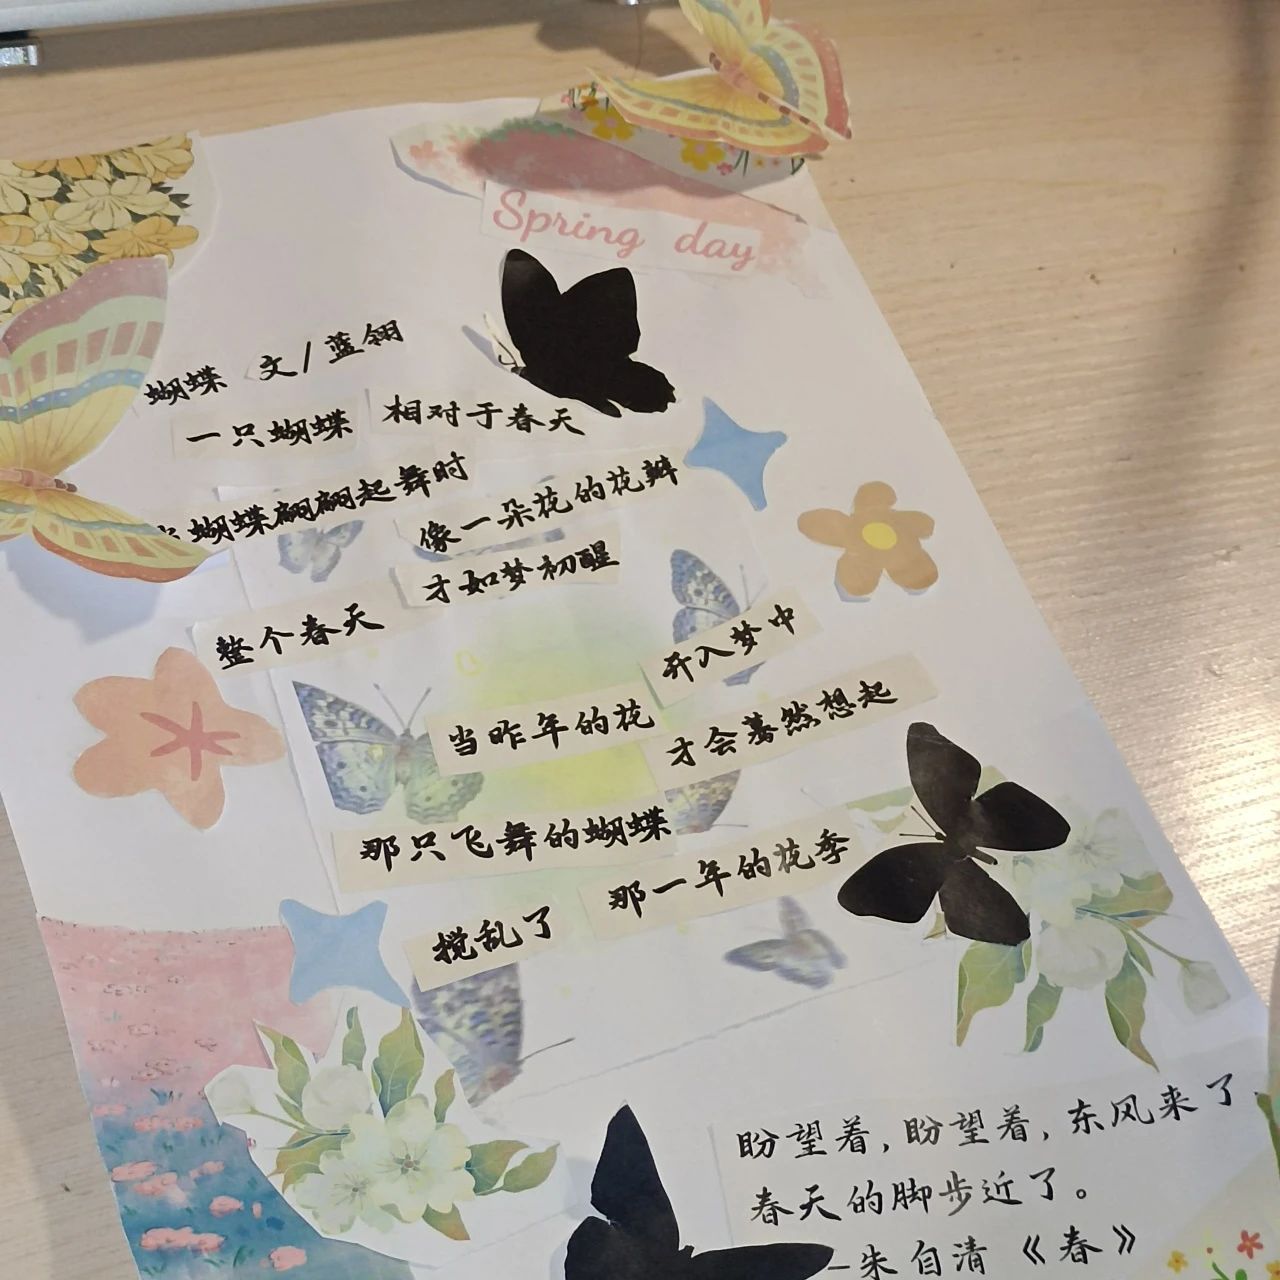 Spring day
蝴蝶 文/蓝翎
一只蝴蝶 相对于春天
像一朵花的花瓣
蝴蝶翩翩起舞时
才如梦初醒
整个春天
开入梦中
当昨年的花
才会蓦然想起
那只飞舞的蝴蝶
那一年的花季
搅乱了
盼望着,盼望着,东风来了,
春天的脚步近了。
—朱自清《春》